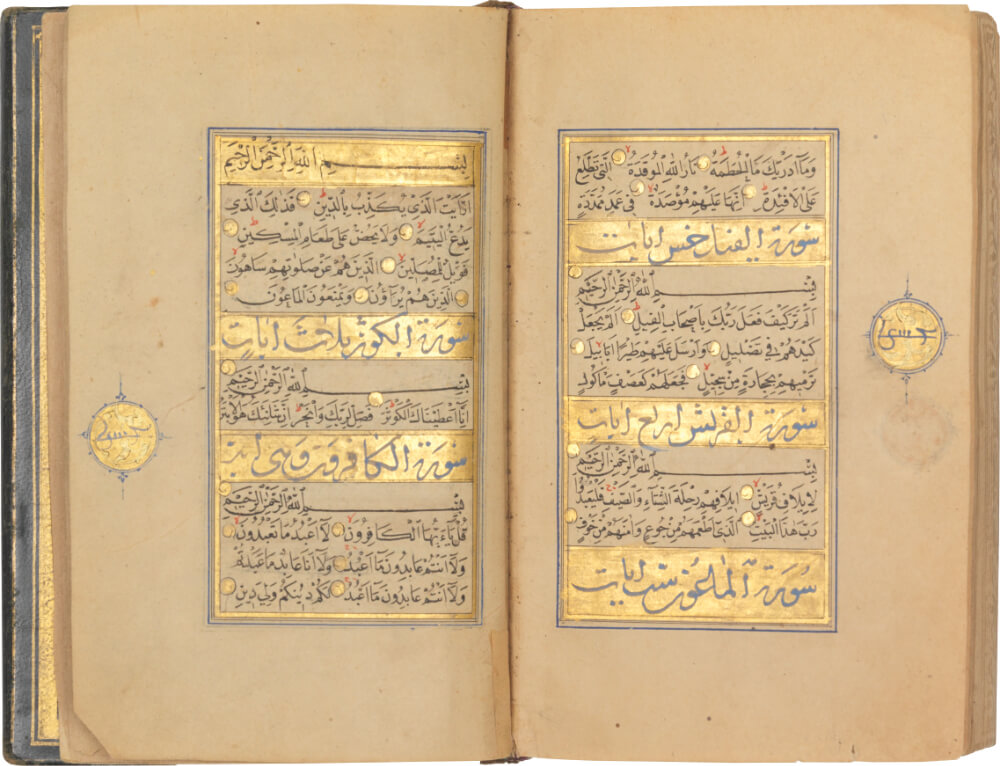 وَمَا اَدْرٰيكَ مَا الْحُطَمَةُ نَارُ اللهِ الْمُوقَدَةُ الَّتِى تَطَّلِعُ
عَلَى الْاَفْئِدَةِ اِنَّهَا عَلَيْهِمْ مُؤْصَدَةٌ فِى عَمَدٍ مُمَدَّدَةٍ
سورة الفيل خمس ايات
بِسْمِ اللهِ الرَّحْمٰنِ الرَّحِيمِ
اَلَمْ تَرَ كَيْفَ فَعَلَ رَبُّكَ بِاَصْحَابِ الْفِيلِ اَلَمْ يَجْعَلْ
كَيْدَهُمْ فِى تَضْلِيلٍ وَاَرْسَلَ عَلَيْهِمْ طَيْرًا اَبَابِيلَ
تَرْمِيهِمْ بِحِجَارَةٍ مِنْ سِجِّيلٍ فَجَعَلَهُمْ كَعَصْفٍ مَاْكُولٍ
سورة القريش اربع ايات
بِسْمِ اللهِ الرَّحْمٰنِ الرَّحِيمِ
لِاِيلَافِ قُرَيْشٍ اِيلَافِهِمْ رِحْلَةَ الشِّتَاءِ وَالصَّيْفِ فَلْيَعْبُدُوا
رَبَّ هٰذَا الْبَيْتِ الَّذِى اَطْعَمَهُمْ مِنْ جُوعٍ وَاٰمَنَهُمْ مِنْ خَوْفٍ
سورة الماعون ست ايات
بِسْمِ اللهِ الرَّحْمٰنِ الرَّحِيمِ
اَرَاَيْتَ الَّذِى يُكَذِّبُ بِالدِّينِ فَذٰلِكَ الَّذِى
يَدُعُّ الْيَتِيمَ وَلَا يَحُضُّ عَلٰى طَعَامِ الْمِسْكِينِ
فَوَيْلٌ لِلْمُصَلِّينَ الَّذِينَ هُمْ عَنْ صَلٰوتِهِمْ سَاهُونَ
الَّذِينَ هُمْ يُرَاؤُنَ وَيَمْنَعُونَ الْمَاعُونَ
سورة الكوثر ثلاث ايات
بِسْمِ اللهِ الرَّحْمٰنِ الرَّحِيمِ
اِنَّا اَعْطَيْنَاكَ الْكَوْثَرَ فَصَلِّ لِرَبِّكَ وَانْحَرْ اِنَّ شَانِئَكَ هُوَ الْاَبْتَرُ
سورة الكافرون وهى ايت
بِسْمِ اللهِ الرَّحْمٰنِ الرَّحِيمِ
قُلْ يَاءَيُّهَا الْكَافِرُونَ لَا اَعْبُدُ مَا تَعْبُدُونَ
وَلَا اَنْتُمْ عَابِدُونَ مَا اَعْبُدُ وَلَا اَنَا عَابِدٌ مَا عَبَدْتُمْ
وَلَا اَنْتُمْ عَابِدُونَ مَا اَعْبُدُ لَكُمْ دِينُكُمْ وَلِىَ دِينِ